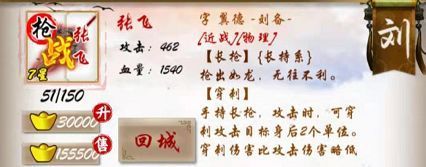 枪
张飞
战
7星
51/150
30000
升
155500
售
张飞
攻击：462
血量：1540
回城
字 翼德-刘备-
[近战][物理]
【长枪】{长持系}
枪出如龙，无往不利。
【穿刺】
手持长枪，攻击时，可穿
刺攻击目标身后2个单位。
穿刺伤害比攻击伤害略低
刘